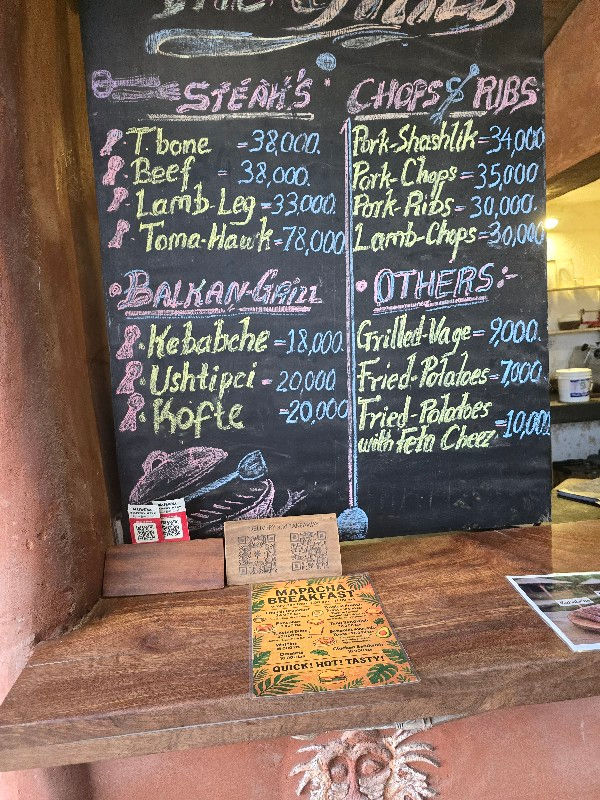 THE GRILL
STEAK'S
T.bone =38,000.
Beef = 38,000.
Lamb-Leg=33,000.
Toma-Hawk=78,000
BALKAN-GRILL
Kebabche =18,000
Ushtipci = 20,000
Kofte =20,000
CHOPS & RIBS
Pork-Shashlik=34,000
Pork-Chops=35,000
Pork-Ribs=30,000.
Lamb-Chops=30,000
OTHERS:-
Grilled-Vage=9,000.
Fried-Potatoes=7,000
Fried-Potatoes
with Feta Cheez =10,000
DELIVERY and TAKEAWAY
MAPACHA
BREAKFAST
QUICK! HOT! TASTY!